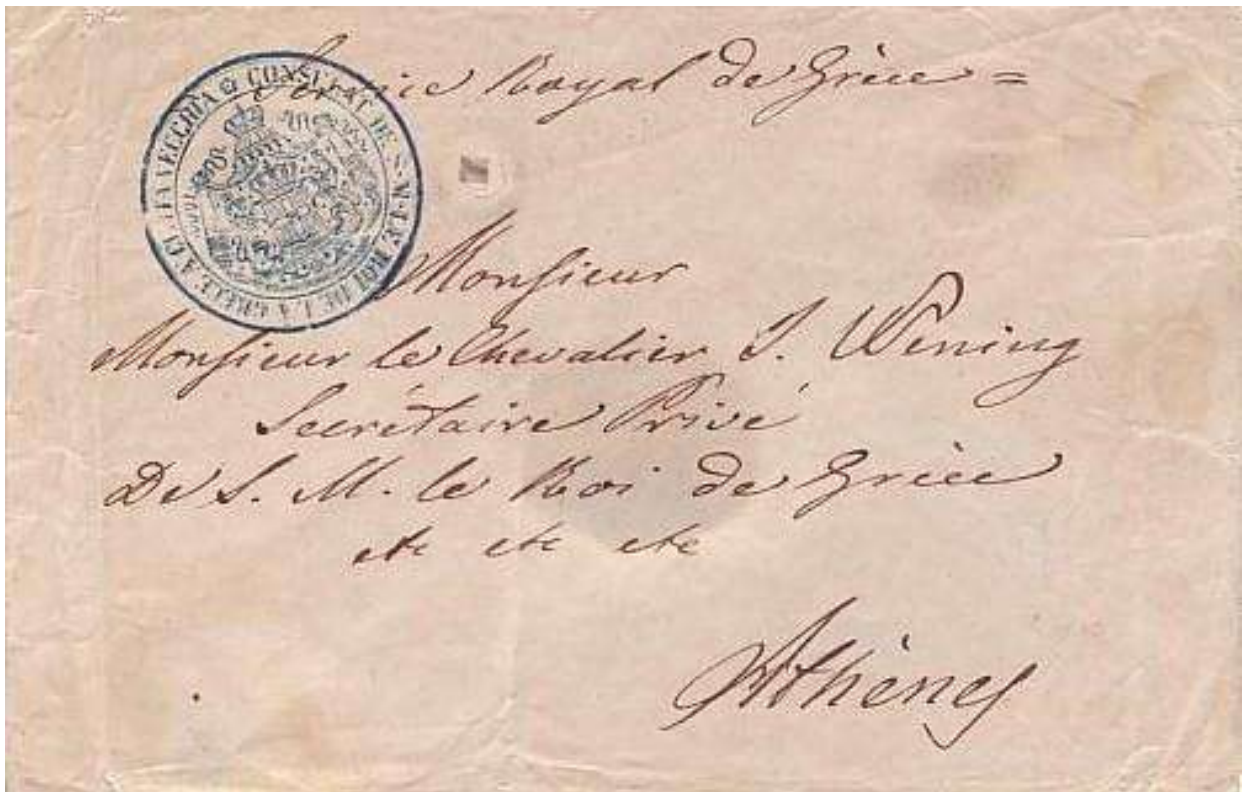 Service Royal de Grèce =
CONSULAT DE S. M. LE ROI DE LA GRECE A CIVITAVECCHIA
Monsieur
Monsieur le Chevalier J. Wening
Secrétaire Privé
De S. M. le Roi de Grèce
etc etc etc
Athènes